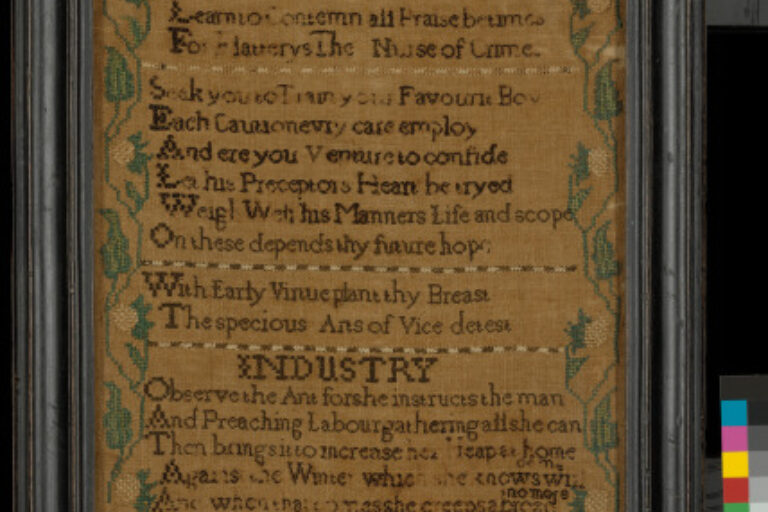 Learn to Contemn all Praise betimes
For Flatterys The Nurse of Crime
Seek you to Train your Favourit Boy
Each Cautionevry care employ
And ere you Venture to confide
Let his Preceptors Heart be tryed
Weigh Well his Manners Life and scope
On these depends thy future hope
With Early Virtue plant thy Breast
The specious Arts of Vice detest
INDUSTRY
Observe the Ant for she instructs the man
And Preaching Labour gathering all she can
Then brings it to increase her Heap at home
Against the Winter which she knows will
come
And when that comes she creeps abroad
no more